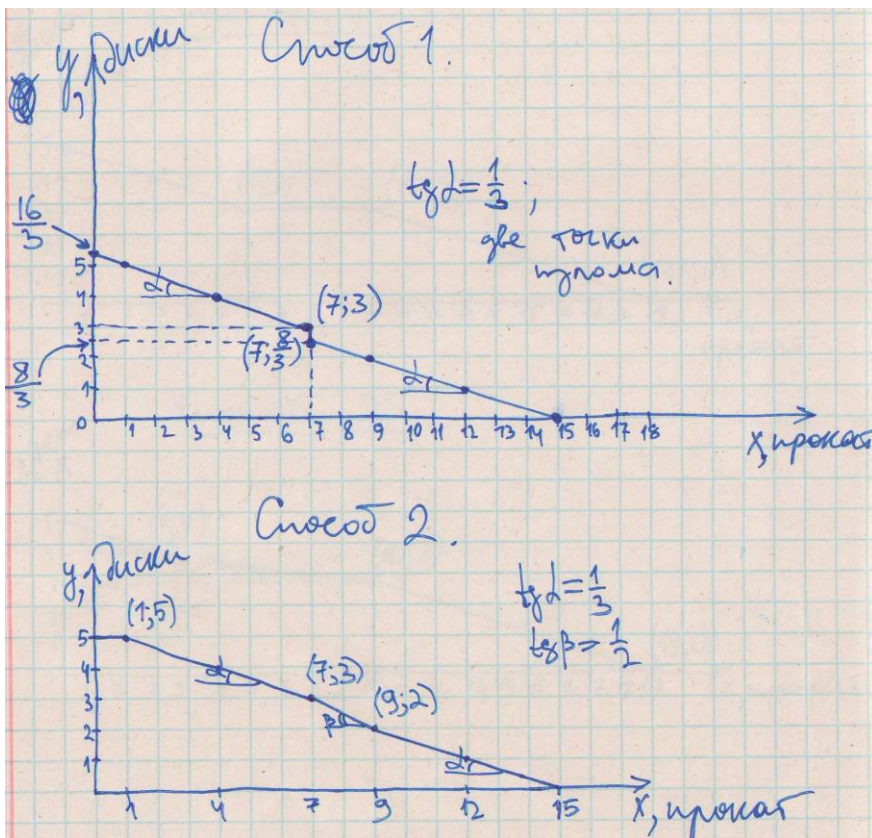 y, диски
Способ 1.
tg α = 1/3 ;
две точки
излома.
16/3
5
4
3
2
1
0
8/3
(7; 3)
(7; 8/3)
α
α
1 2 3 4 5 6 7 8 9 10 11 12 13 14 15 16 17 18
x, прокат
Способ 2.
y, диски
tg α = 1/3
tg β = 1/2
(1; 5)
(7; 3)
(9; 2)
α
β
α
5
4
3
2
1
1 4 7 9 12 15
x, прокат